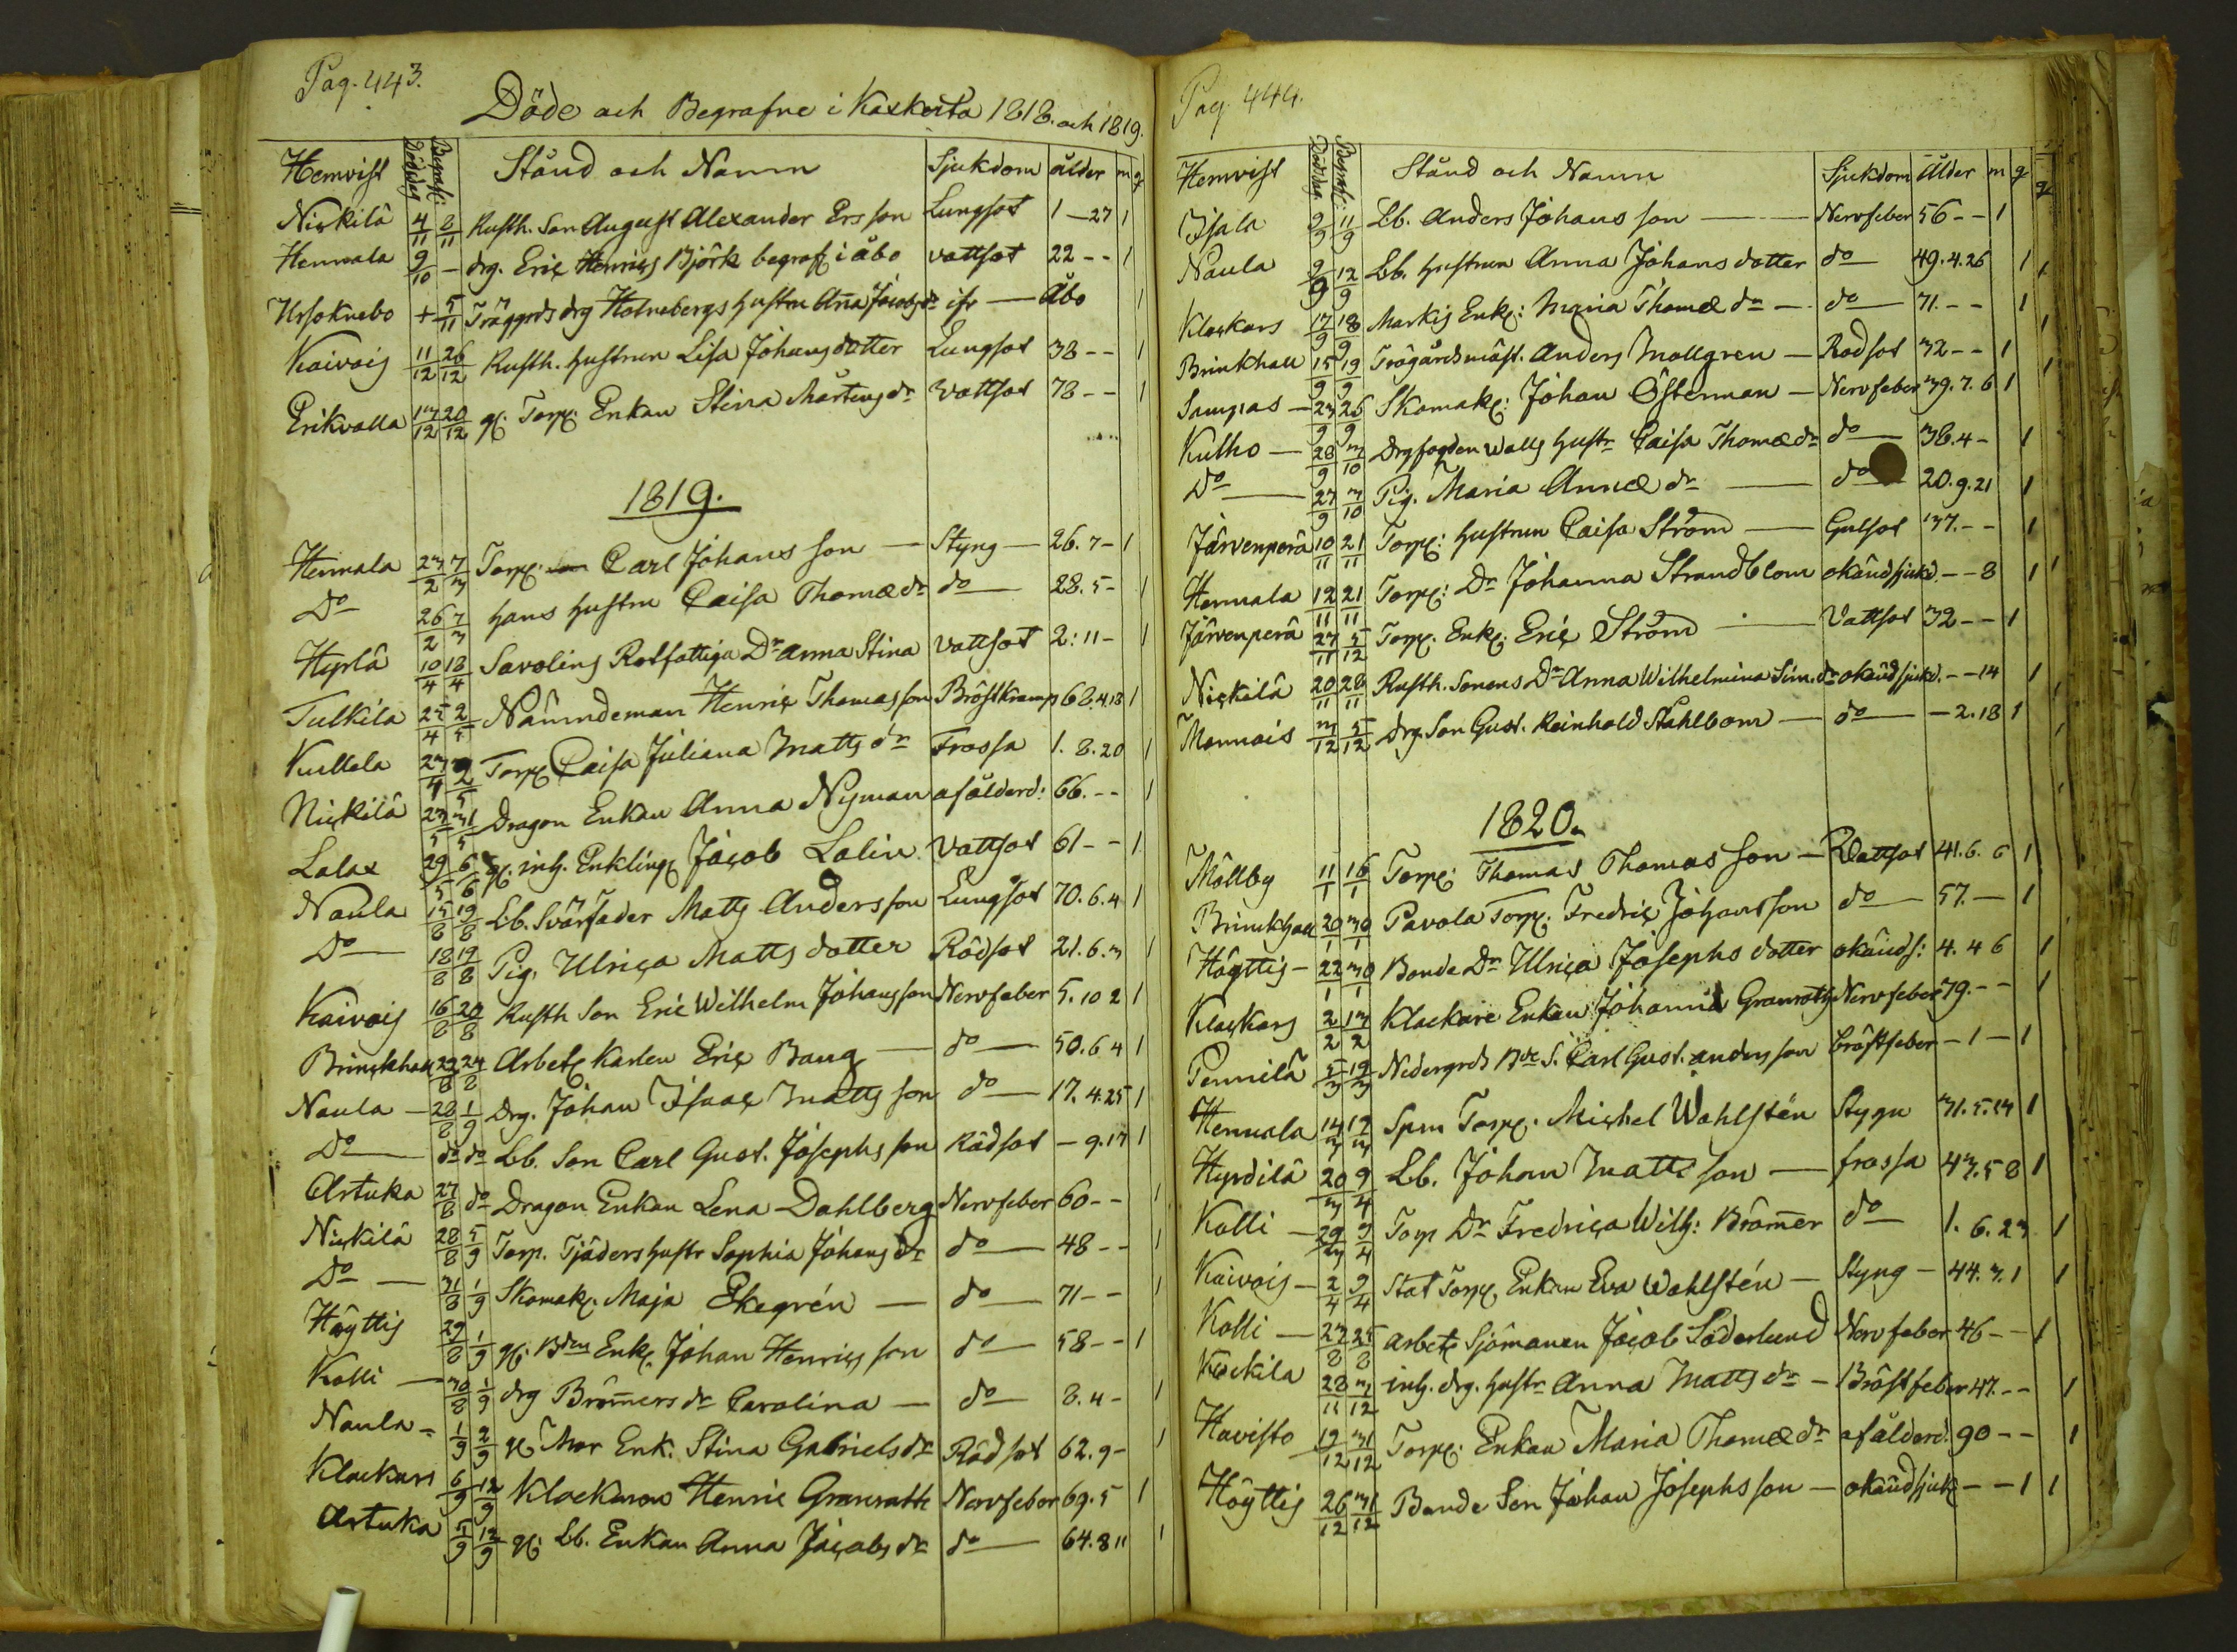 Pag. 443.
Döde och Begrafne i Kaskerta 1818. och 1819.
Hemvist Döddag Begrafn: Stånd och Namn Sjukdom ålder m q
Nickilä 4/11 8/11 Rusth. Son August Alexander Ersson Lungsot 1 — 27 1
Hennala 9/10 — drg. Eric Henrics Björk begraf i åbo vattsot 22 - - 1
+ 5/11 Träggrds drg Holmbergs hustru Aña Jacobs dr Åbo 1
Kaivois 11/12 26/12 Rusth. hustrun Lisa Johansdotter Lungsot 38 - - 1
Erikvalla 13/12 20/12 gl. Torp: Enkan Stina Mårtens dr Vattsot 78 - - 1
1819.
Hennala 23/2 7/3 Torp: Carl Johansson — Styng — 26. 7 - 1
Do 26/2 7/3 hans hustru Caisa Thomæ dr do 28. 5 - 1
Hyrlä 10/4 18/4 Savolins Rotfattiga Dr Anna Stina Vattsot 2: 11 - 1
Tulkila 25/4 2/5 Nämndeman Henric Thomasson Bröstkramp 68. 4. 18 1
Kullela 23/4 2/5 Torp Caisa Juliana Matts dr Frossa 1. 8. 20 1
Nickilä 23/5 31/5 Dragon Enkan Anna Nyman af ålderd: 66. - - 1
Lalax 29/5 6/6 gl. inh. Enkling Jacob Lalin Vattsot 61 - - 1
Naula 15/8 19/8 Lb. Svärfader Matts Andersson Lungsot 70. 6. 4 1
Do 18/8 19/8 Pig. Ulrica Matts dotter Rödsot 21. 6. 3 1
Kaivois 16/8 20/8 Rusth Son Eric Wilhelm Johansson Nervfeber 5. 10 2 1
Brinckhall 22/8 24/8 Arbets Karlen Eric Bang — do 50. 6 4 1
Naula — 28/8 1/9 Drg. Johan Isaac Mattsson do — 17. 4. 25 1
Do do do Lb. Son Carl Gust. Josephsson Rödsot — 9. 17 1
Artuka 27/8 do Dragon Enkan Lena Dahlberg Nervfeber 60 - - 1
Nickilä 28/8 5/9 Torp. Tjäders hustr Sophia Johans dr do 48 - - 1
Do — 31/8 1/9 Skomak. Maja Ekegrén — do 71 - - 1
Höyttis 29/8 1/9 gl. Bden Enkl. Johan Henricsson do 58 - - 1
Kolli — 30/8 1/9 drg Bröm̄ers dr Carolina — do 8. 4 - 1
Naula - 1/9 2/9 gl Mor Enk. Stina Gabriels dr Rödsot 62. 9 - 1
Klockars 6/9 12/9 Klockaren Henric Granroth Nervfeber 69. 5 1
Artuka 5/9 12/9 gl. Lb. Enkan Anna Jacobs dr do 64. 8 11 1
Pag. 444.
Hemvist Döddag Begrafn: Stånd och Namn Sjukdom Ålder m q
Isala 9/9 11/9 Lb. Anders Johansson — Nervfeber 56 - - 1
Naula 9/9 12/9 Lb. hustrun Anna Johansdotter do 49. 4. 26 1
Klockars 17/9 18/9 Enk: Maria Thomæ dr — do 71. - - 1
Brinkhall 15/9 19/9 Trägårdsmäst. Anders Mollgren — Rödsot 32 - - 1
Sampas — 23/9 26/9 Skomak: Johan Österman — Nervfeber 39. 7. 6 1
Kulho — 28/9 3/10 Drg fogden Walls hustr Caisa Thomæ dr do 38. 4 - 1
Do 27/9 3/10 Pig. Maria Annæ dr — do 20. 9. 21 1
Järvenperä 10/11 21/11 Torp: hustrun Caisa Ström — Gulsot 37. - - 1
Hennala 12/11 21/11 Torp: Dr Johanna Strandblom okänd sjukd. - - 8 1
Järvenperä 27/11 5/12 Torp. Enkl. Eric Ström Vattsot 32 - - 1
Nickilä 20/11 28/11 Rusth. Sonens Dr Anna Wilhelmina Sim. dr okänd sjukd. - - 14 1
Monnois 3/12 5/12 Drg. Son Gust. Reinhold Stählbom — do — 2. 18 1
1820.
Möllby 11/1 16/1 Torp: Thomas Thomasson — Vattsot 41. 6. 6 1
Brinckhall 20/1 30/1 Pavola Torp. Fredric Johansson do 57. — 1
Höyttis — 22/1 30/1 Bonde Dr Ulrica Josephs dotter okänd s: 4. 4 6 1
Klockars 2/2 13/2 Klockare Enkan Johanna Granroth Nervfeber 79. - - 1
Pennilä 5/3 19/3 Nedergrds Bde S. Carl Gust. Andersson Bröstfeber — 1 — 1
Hennala 14/3 19/3 Torp. Michel Wahlstén Stygn 31. 5. 14 1
Hyrdilä 20/3 9/4 Lb. Johan Mattsson — frossa 43. 5 8 1
Kolli — 29/3 9/4 Torp Dr Fredrica Wilh: Bröm̄er do 1. 6. 23 1
Kaivois — 2/4 9/4 Stat Torp. Enkan Eva Wahlstén — Styng — 44. 3. 1 1
Kolli — 23/8 25/8 arbets Sjömannen Jacob Söderlund Nervfeber 46 - - 1
Kockila 28/11 3/12 inh. drg. hustr Anna Matts dr — Bröstfeber 47. - - 1
Havisto 19/12 31/12 Torp: Enkan Maria Thomæ dr af ålderd: 90 - - 1
Höyttis 26/12 31/12 Bonde Son Johan Josephsson — okänd sjuk - - 1 1